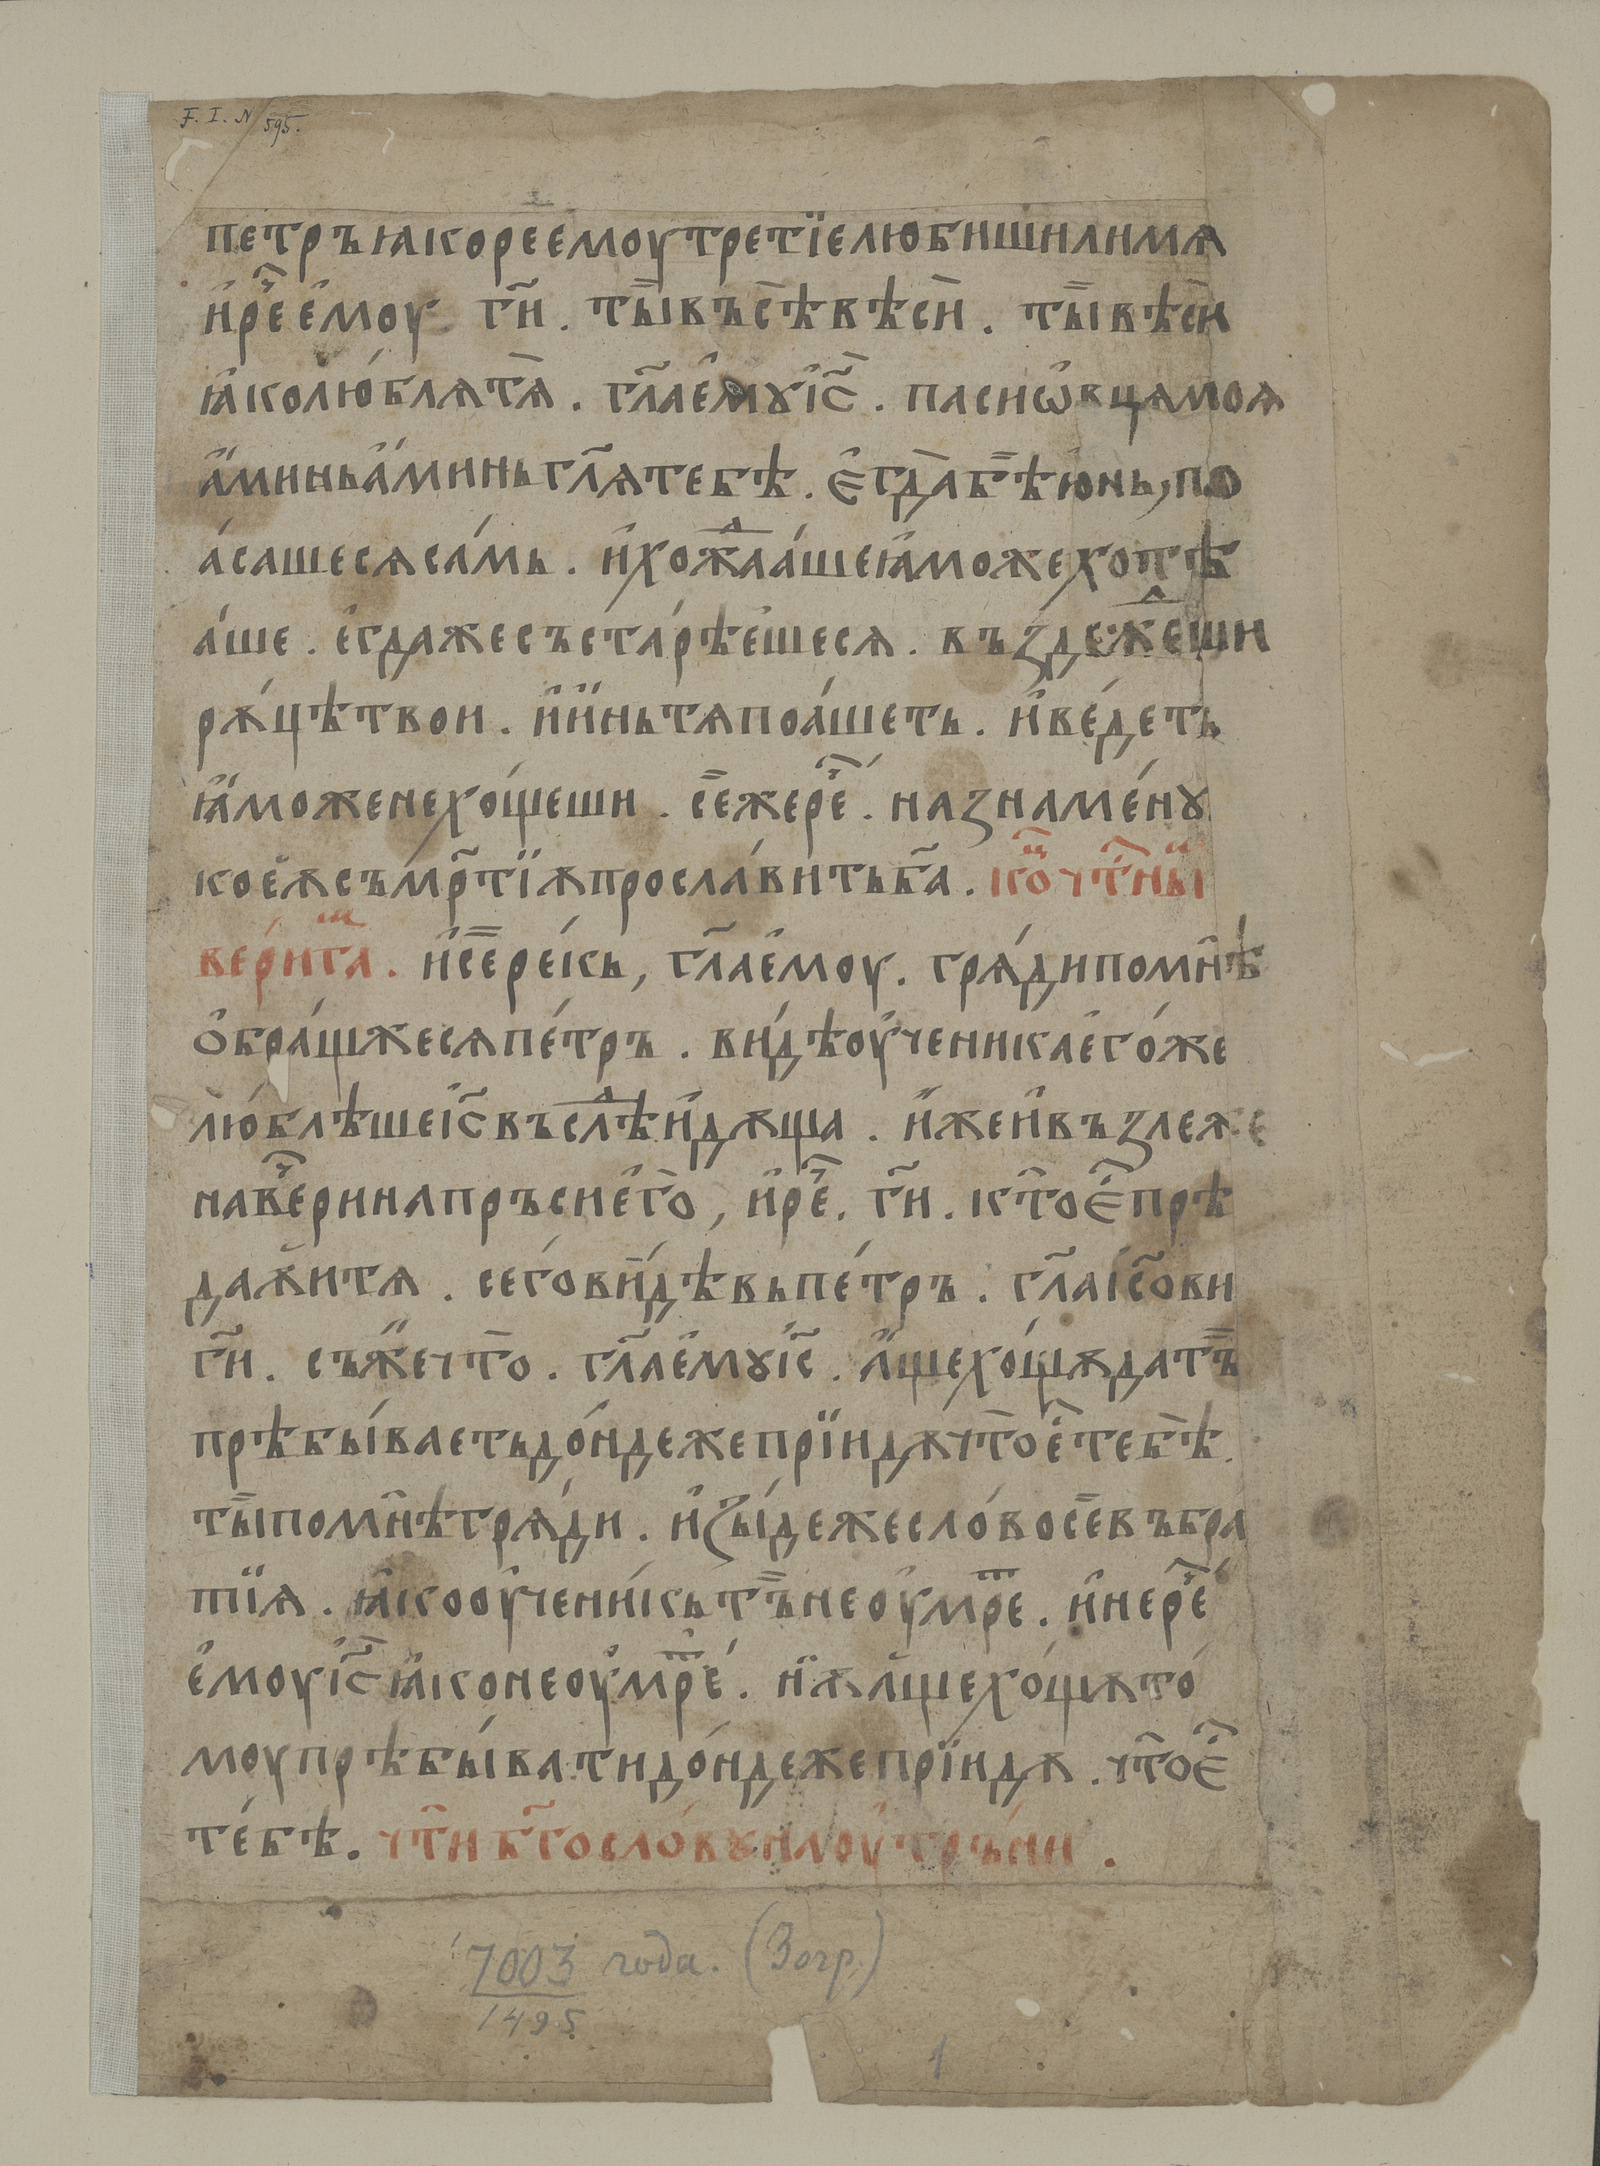 F. I. N 595.
петръ ꙗко рее емоу третїе любиши ли мѧ
и҆ рⷱ҇е е҆моу г҃и . ты въсѣ вѣси . ты вѣси
ꙗко люблѧ тѧ . гл҃а е҆мꙋ і҆с҃ . паси ѡ҆вцѧ моѧ
а҆минь а҆минь гл҃ѧ тебѣ . є҆гда бѣ юнь, по
а́саше сѧ са́мь . и҆ хожⷣааше ꙗ҆може хотѣ
а́ше . е҆гда же състарѣеше сѧ . въздежⷣеши
рѫ́цѣ твои . и҆ и҆нь тѧ поа́шеть . и҆ ве́деть
ꙗ҆може не хо́щеши . се же рⷱ҇е . назнаме́нꙋ
коеѫ съмр҃тїѫ просла́вить б҃а . ко чⷭ҇тны
вери́га . и҆ се ре́кь, гл҃а е҆моу . грѧ́ди по мнѣ
ѻ҆бра́щ же сѧ пе́тръ . ви́дѣ оу҆ченика е҆го́же
лю́блѣше і҆с҃ въ слѣⷣ и҆дѫща . и҆же и҆ възлеже
на вⷱ҇ери на пръси е҆го , и҆ рⷱ҇е . г҃и . кто є҆ⷭ҇ прѣ
даѫи тѧ . сего́ ви́дѣвь пе́тръ . гл҃а і҆с҃ови
г҃и . съ же что . гл҃а е҆мꙋ і҆с҃ . а҆ще хо́щѫ да тъ
прѣбы́ваеть до́ндеже прїидѫ что е҆ⷭ҇ тебѣ .
ты по мнѣ грѧ́ди . и҆зы́де же сло́во се въ бра
тїѧ . ꙗ҆ко оу҆чени́кь тъ не оу҆мрⷮе . и҆ не рⷱ҇е
е҆моу і҆с҃ ꙗ҆ко не оу҆мрⷮе . нѫ а҆ще хо́щѫ то́
моу прѣбы́вати до́ндеже прїидѫ . что є҆ⷭ҇
те́бѣ . чⷭ҇ти бг҃осло́вꙋ
7003 года. (Зогр.)
1495
1